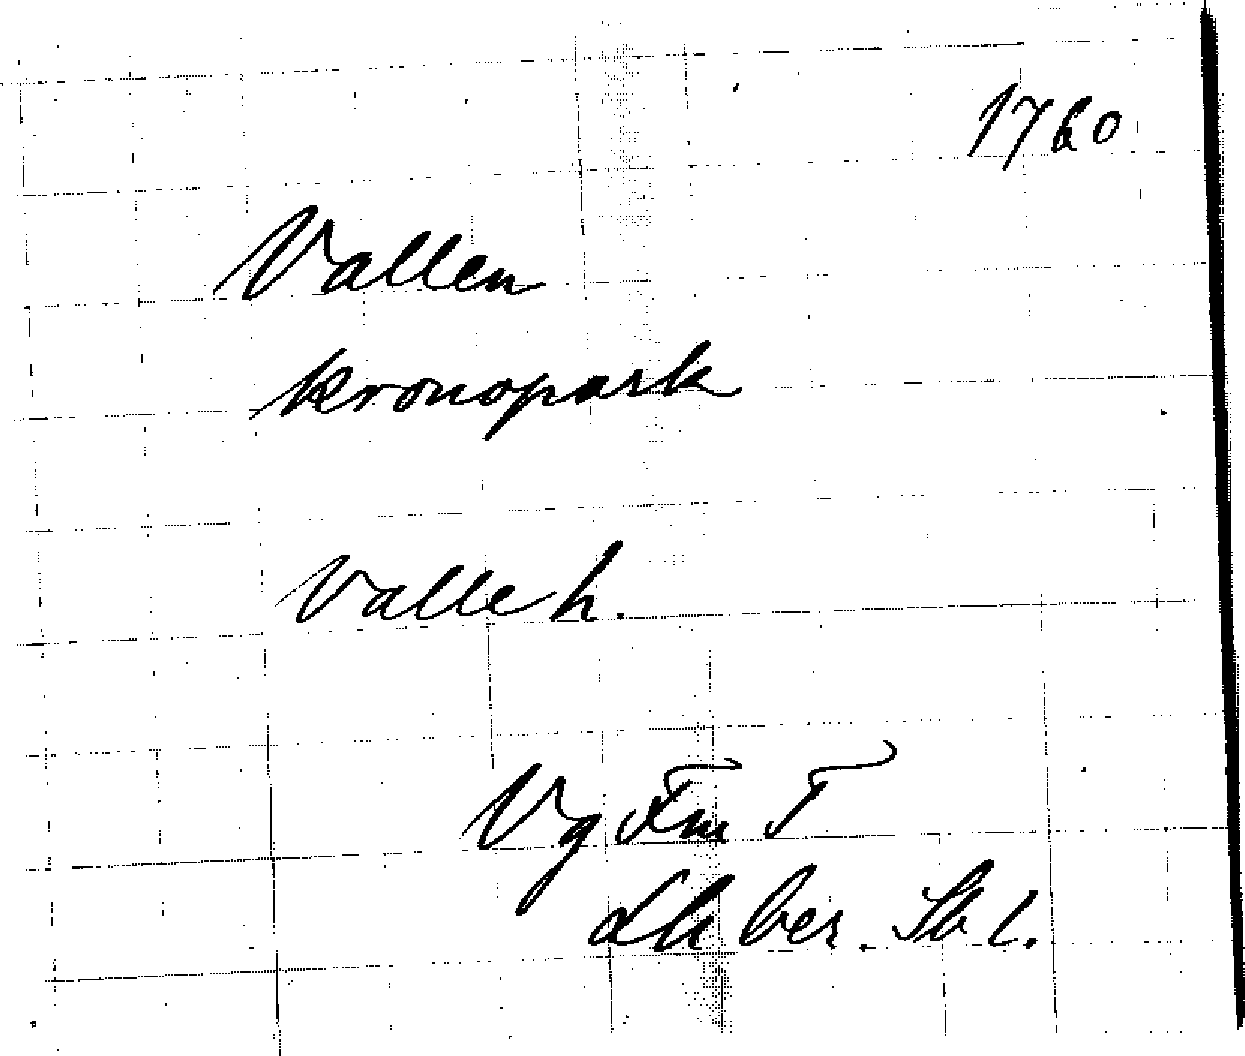 1760
Vallen
kronopark
Valle h.
Vg Fm T
Lh ber. Sb l.